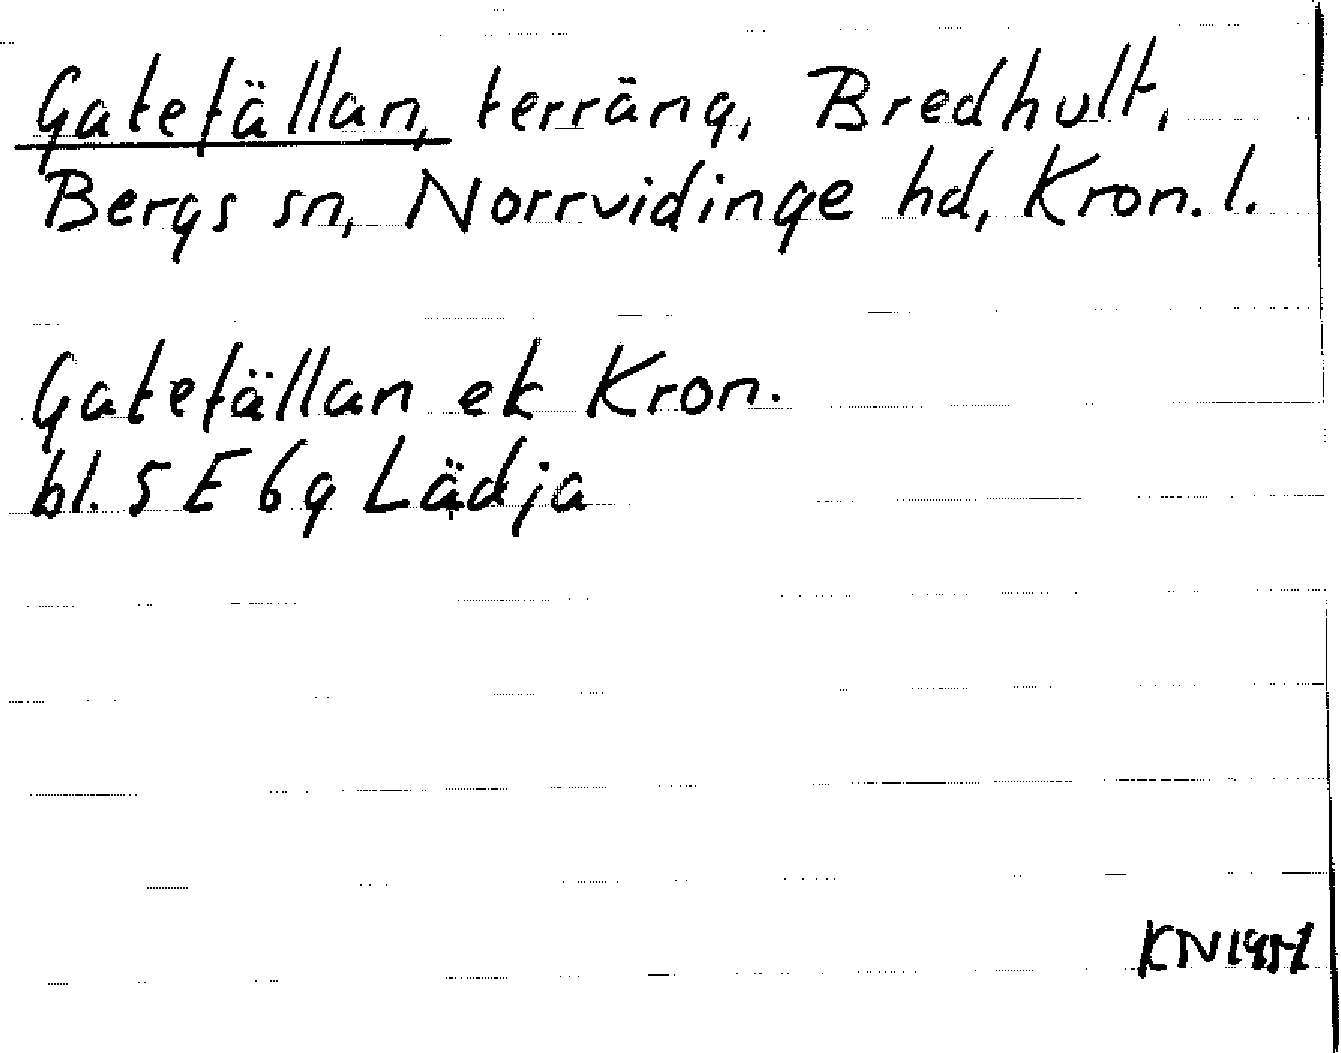 Gatefällan, terräng, Bredhult,
Bergs sn, Norrvidinge hd, Kron. l.
Gatefällan ek Kron.
bl. 5 E 6g Lädja